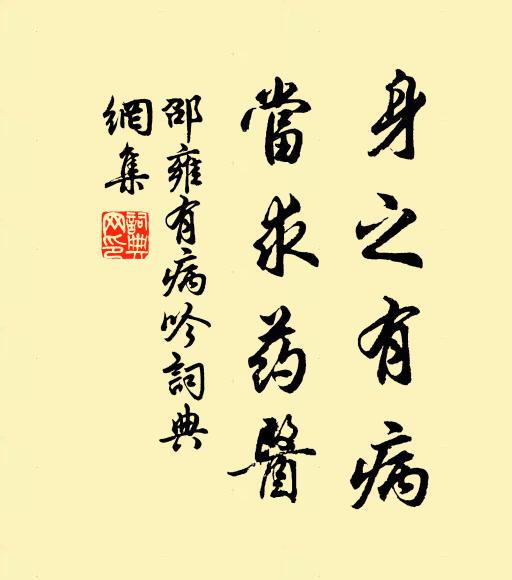 身之有病
當求药醫
邵雍有病吟詞典
網集
詞典
网印